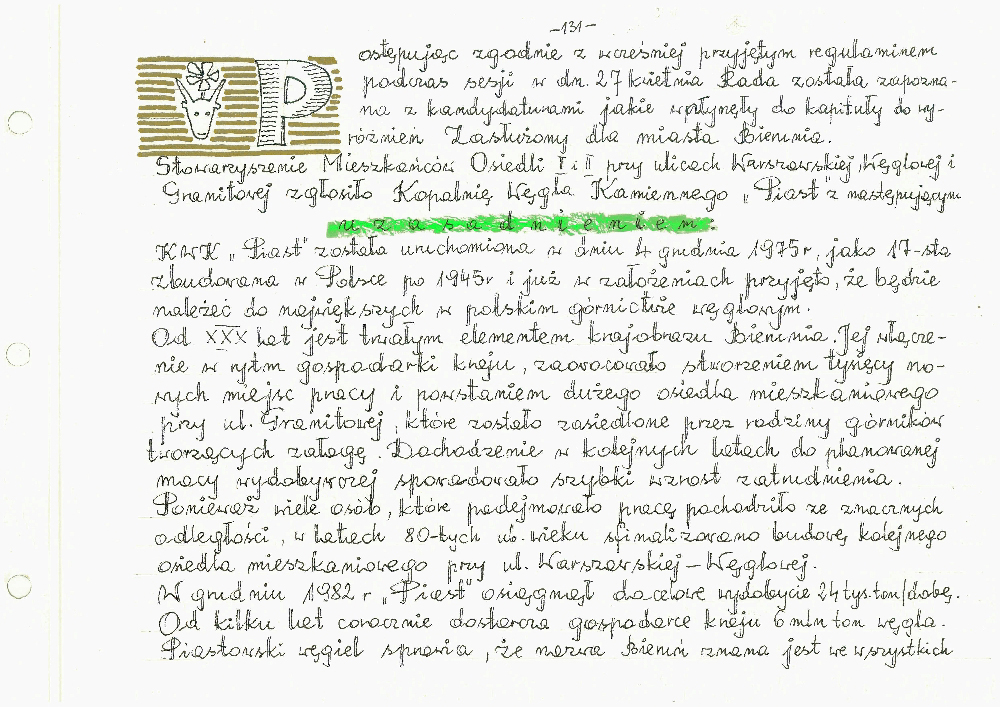 -131-
Postępując zgodnie z wcześniej przyjętym regulaminem
podczas sesji w dn. 27 kwietnia Rada została zapozna-
na z kandydaturami jakie wpłynęły do kapituły do wy-
różnień Zasłużony dla miasta Bierunia.
Stowarzyszenie Mieszkańców Osiedli I i II przy ulicach Warszawskiej, Węglowej i
Granitowej zgłosiło Kopalnię Węgla Kamiennego „Piast" z następującym
uzasadnieniem:
KWK „Piast" została uruchomiona w dniu 4 grudnia 1975r, jako 17-sta
zbudowana w Polsce po 1945r i już w założeniach przyjęto, że będzie
należeć do największych w polskim górnictwie węglowym.
Od XXX lat jest trwałym elementem krajobrazu Bierunia. Jej włącze-
nie w rytm gospodarki kraju, zaowocowało stworzeniem tysięcy no-
wych miejsc pracy i powstaniem dużego osiedla mieszkaniowego
przy ul. Granitowej, które zostało zasiedlone przez rodziny górników
tworzących załogę. Dochodzenie w kolejnych latach do planowanej
mocy wydobywczej spowodowało szybki wzrost zatrudnienia.
Ponieważ wiele osób, które podejmowało pracę pochodziło ze znacznych
odległości, w latach 80-tych ub. wieku sfinalizowano budowę kolejnego
osiedla mieszkaniowego przy ul. Warszawskiej - Węglowej.
W grudniu 1982 r „Piast" osiągnął docelowe wydobycie 24 tys. ton/dobę.
Od kilku lat corocznie dostarcza gospodarce kraju 6 mln ton węgla.
Piastowski węgiel sprawia, że nazwa Bieruń znana jest we wszystkich